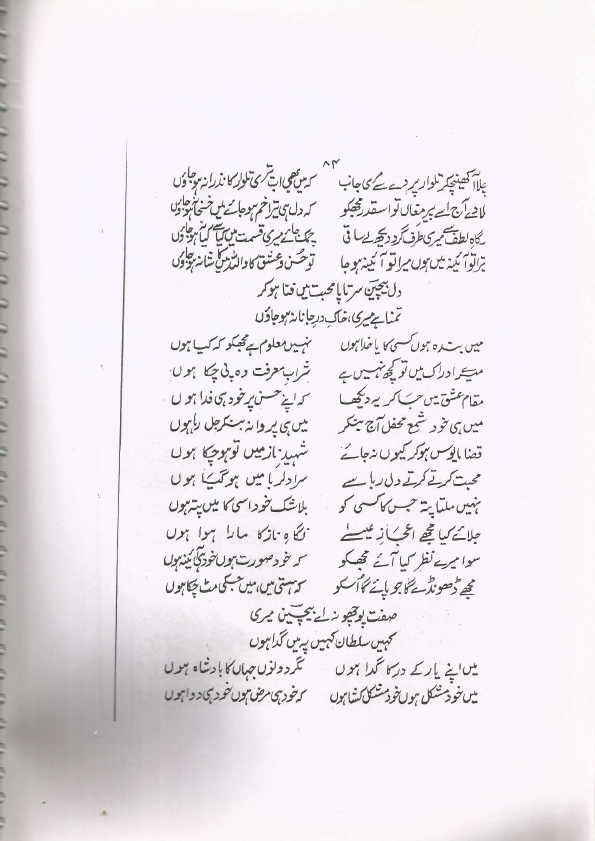 ۸۴
بلا کھینچکر تلوار پر دے مے مری جانب کہ میں بھی اب تری تلوار کا نذرانہ ہو جاؤں
لادے آج اے پیر مغاں تو اسقدر مجھکو کہ دل ہی تیرا خم ہو جائے میں خمخانہ ہو جاؤں
نگاہِ لطف سے میری طرف گر دیکھ لے ساقی چمک جائے میری قسمت میں کیا سے کیا ہو جاؤں
ترا تو آئینہ میں ہوں میرا تو آئینہ ہو جا تو حُسن و عشق کا واللہ میں کاشانہ ہو جاؤں
دل بیچین سرتاپا محبت میں فنا ہو کر
تمنا ہے میری، خاکِ درِ جانانہ ہو جاؤں
میں بندہ ہوں کسی کا یا خدا ہوں نہیں معلوم ہے مجھکو کہ کیا ہوں
میرے ادراک میں تو کچھ نہیں ہے شرابِ معرفت وہ پی چکا ہوں
مقام عشق میں جا کر یہ دیکھا کہ اپنے حسن پر خود ہی فدا ہوں
میں ہی خود شمع محفل آج بنکر میں ہی پروانہ بنکر جل رہا ہوں
قضا مایوس ہو کر کیوں نہ جائے شہیدِ ناز میں تو ہو چکا ہوں
محبت کرتے کرتے دل ربا سے سرا دلربا میں ہو گیا ہوں
نہیں ملتا پتہ جس کا کسی کو بلا شک خود اسی کا میں پتہ ہوں
جلائے کیا مجھے اعجازِ عیسےٰ نگاہِ ناز کا مارا ہوا ہوں
سوا میرے نظر کیا آئے مجھکو کہ خود صورت ہوں خود ہی آئینہ ہوں
مجھے ڈھونڈے گا جو پائے گا اُسکو کہ ہستی میں، میں جسکی مٹ چکا ہوں
صفت پوچھو نہ اے بیچین میری
کہیں سلطان کہیں پہ میں گدا ہوں
میں اپنے یار کے در کا گدا ہوں مگر دونوں جہاں کا بادشاہ ہوں
میں خود مشکل ہوں خود مشکل کشا ہوں کہ خود ہی مرض ہوں خود ہی دوا ہوں